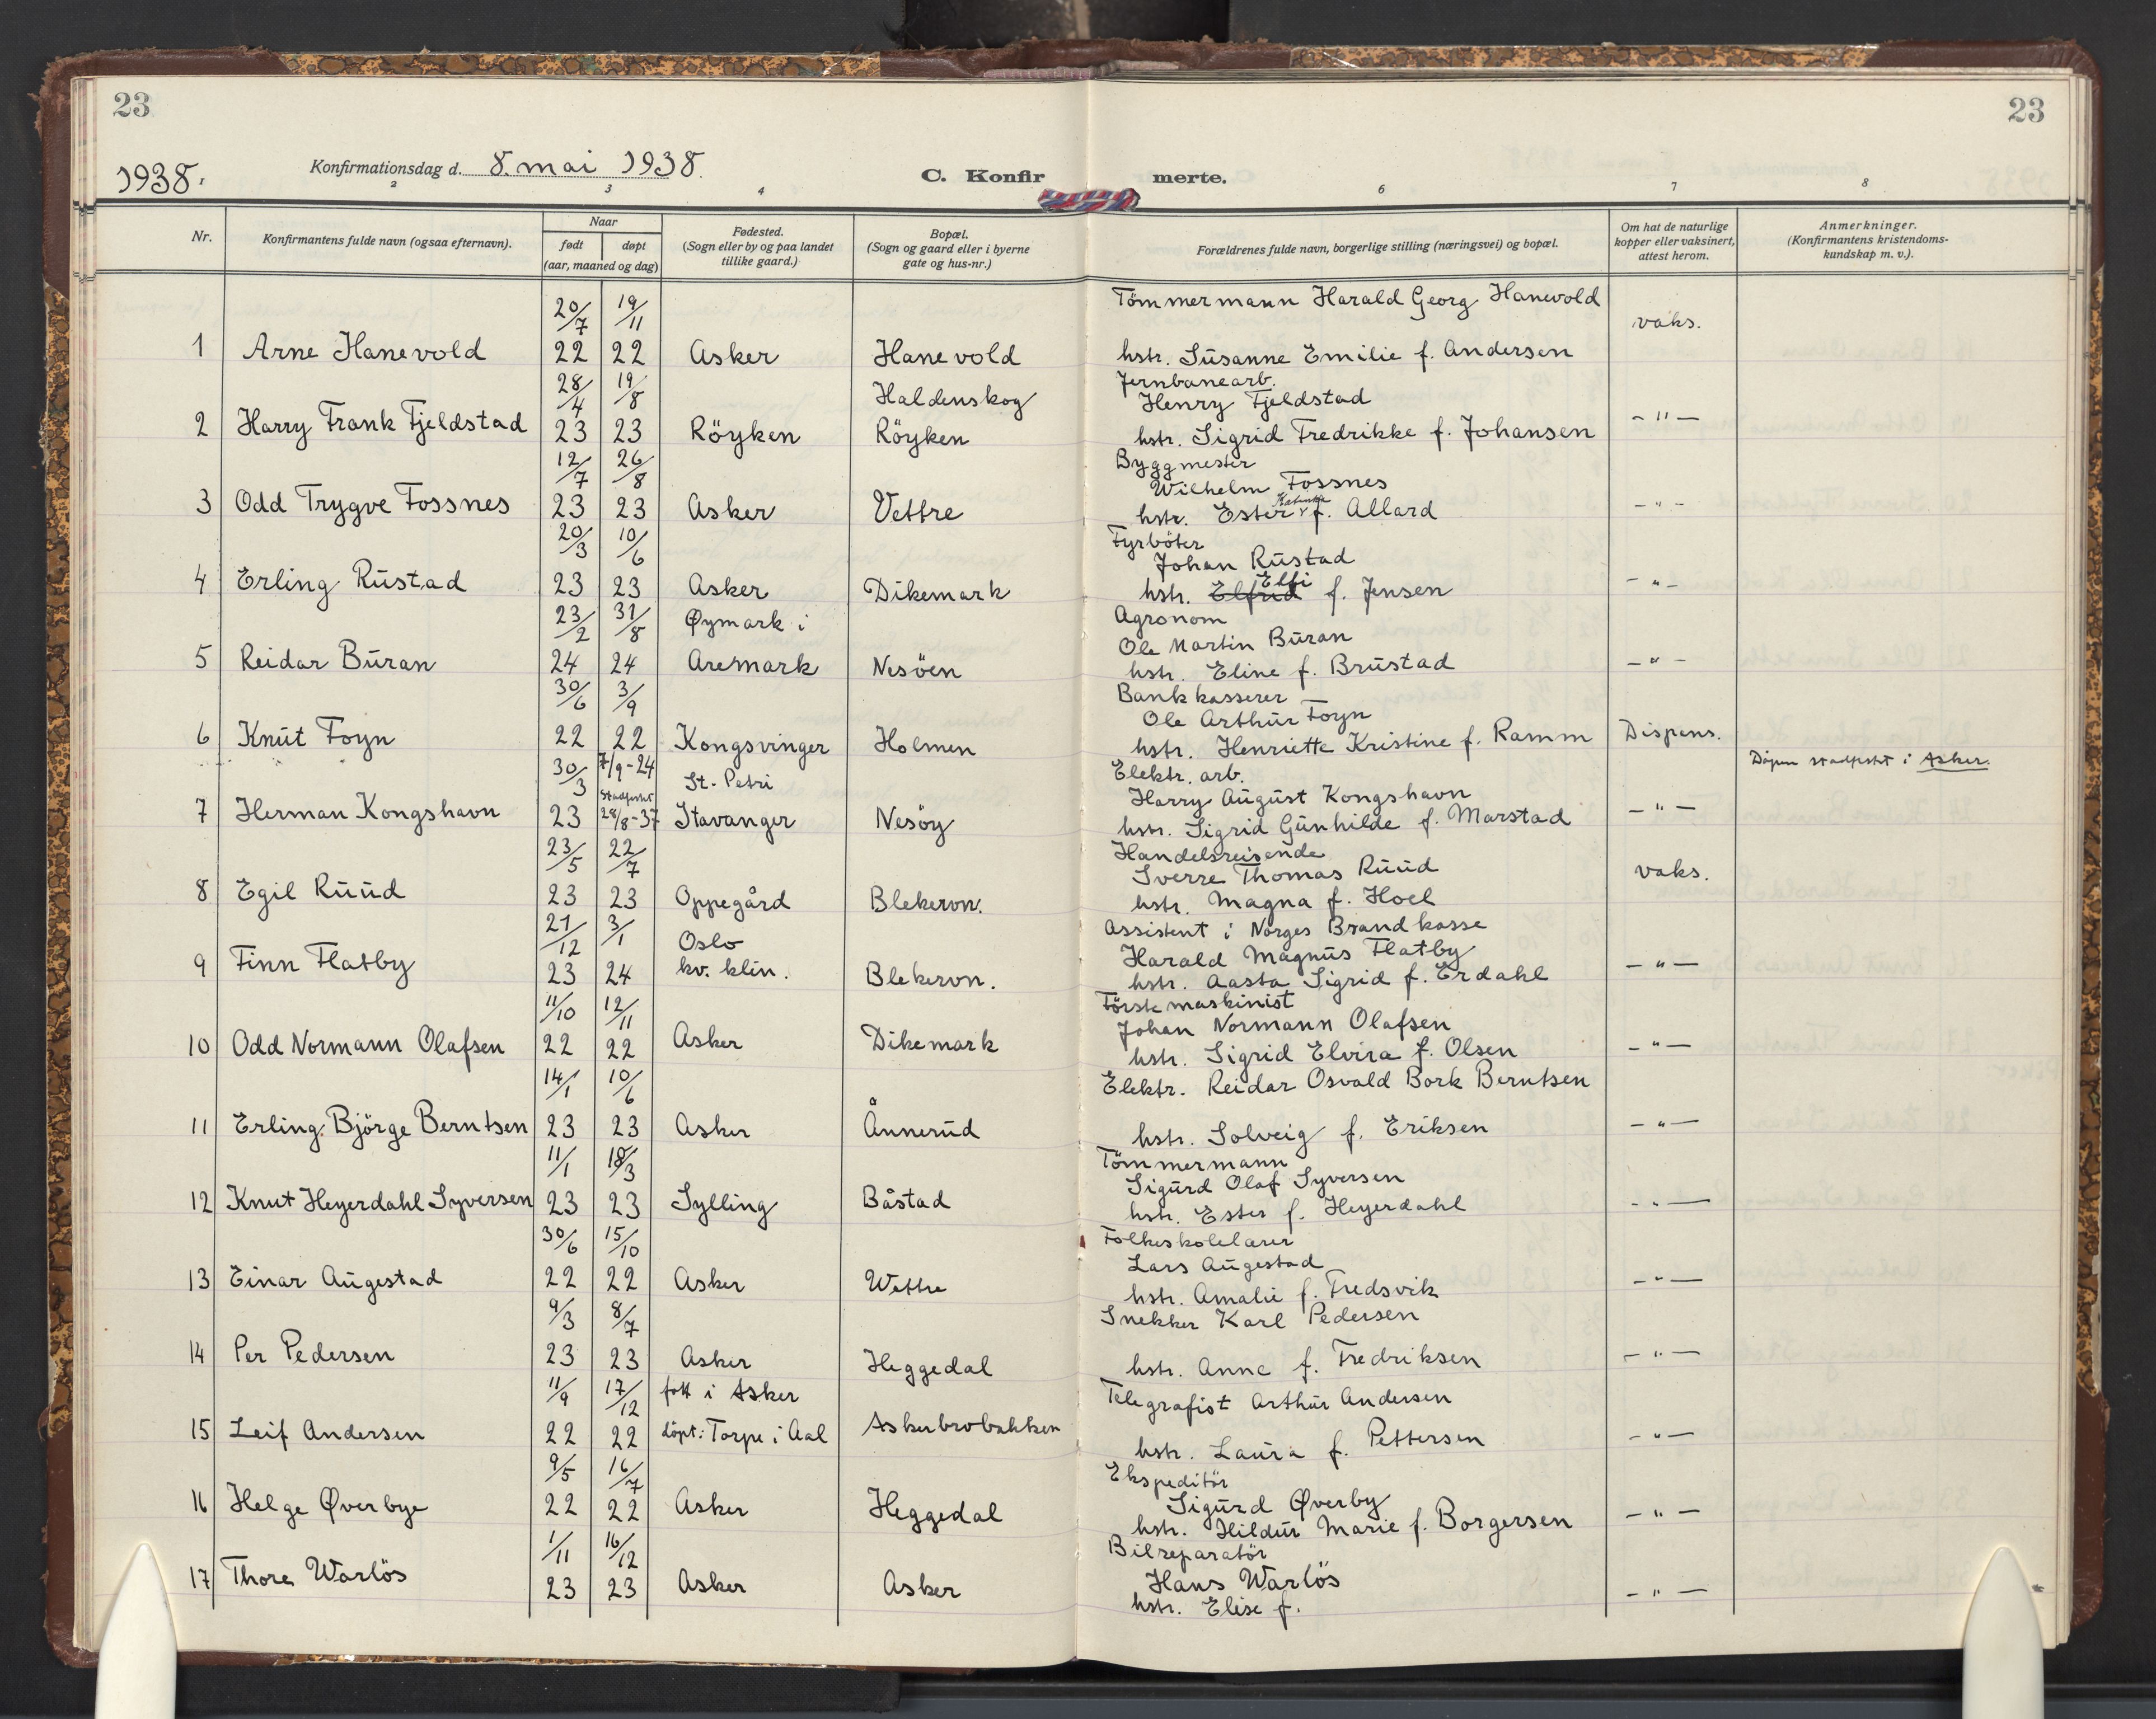 23
23
1938.
Konfirmationsdag d. 8. mai 1938.
C. Konfirmerte.
2 3 4 6 7 8
Nr.
Konfirmantens fulde navn (ogsaa efternavn).
Naar
født
døpt
(aar, maaned og dag)
Fødested.
(Sogn eller by og paa landet
tillike gaard.)
Bopæl.
(Sogn og gaard eller i byerne
gate og hus-nr.)
Forældrenes fulde navn, borgerlige stilling (næringsvei) og bopæl.
Om hat de naturlige
kopper eller vaksinert,
attest herom.
Anmerkninger.
(Konfirmantens kristendoms-
kundskap m. v.).
20/7 19/11 Tömmermann Harald Georg Hanevold vaks.
1 Arne Hanevold 22 22 Asker Hanevold hstr. Susanne Emilie f. Andersen
28/4 19/8 Haldenskog Jernbanearb.
Henry Fjeldstad
2 Harry Frank Fjeldstad 23 23 Röyken Röyken hstr. Sigrid Fredrikke f. Johansen -"-
12/7 26/8 Byggmester
Wilhelm Fossnes
3 Odd Trygve Fossnes 23 23 Asker Vettre hstr. Ester f. Allard -"-
20/3 10/6 Fyrböter
Johan Rustad
Elfi
4 Erling Rustad 23 23 Asker Dikemark hstr. Elfrid f. Jensen -"-
23/2 31/8 Øymark i Agronom
Ole Martin Buran
5 Reidar Buran 24 24 Aremark Nesöen hstr. Eline f. Brustad -"-
30/6 3/9 Bankkasserer
Ole Arthur Foyn
6 Knut Foyn 22 22 Kongsvinger Holmen hstr. Henriette Kristine f. Ramm Dispens.
30/3 7/9-24 St. Petri Elektr. arb. Dåpen stadfestet i Asker.
stadfestet Harry August Kongshavn
7 Herman Kongshavn 23 28/8-37 Stavanger Nesöy hstr. Sigrid Gunhilde f. Marstad -"-
23/5 22/7 Handelsreisende
Sverre Thomas Ruud vaks.
8 Egil Ruud 23 23 Oppegård Blekervn. hstr. Magna f. Hoel
21/12 3/1 Oslo Assistent i Norges Brandkasse
Harald Magnus Flatby
9 Finn Flatby 23 24 kv. klin. Blekervn. hstr. Aasta Sigrid f. Erdahl -"-
11/10 12/11 Förstemaskinist
Johan Normann Olafsen
10 Odd Normann Olafsen 22 22 Asker Dikemark hstr. Sigrid Elvira f. Olsen -"-
14/1 10/6 Elektr. Reidar Osvald Bork Berntsen
11 Erling Björge Berntsen 23 23 Asker Ånnerud hstr. Solveig f. Eriksen -"-
11/1 18/3 Tömmermann
Sigurd Olaf Syversen
12 Knut Heyerdahl Syversen 23 23 Sylling Båstad hstr. Ester f. Heyerdahl -"-
30/6 15/10 Folkeskolelærer
Lars Augestad
13 Einar Augestad 22 22 Asker Wettre hstr. Amalie f. Fredsvik -"-
9/3 8/7 Snekker Karl Pedersen
14 Per Pedersen 23 23 Asker Heggedal hstr. Anna f. Fredriksen -"-
11/9 17/12 fött i Asker Telegrafist Arthur Andersen
15 Leif Andersen 22 22 döpt: Torpe i Aal Askerbrobakken hstr. Laura f. Pettersen -"-
9/5 16/7 Ekspeditör
Sigurd Øverby
16 Helge Øverbye 22 22 Asker Heggedal hstr. Hildur Marie f. Borgersen -"-
1/11 16/12 Bilreparatör
Hans Warlös
17 Thore Warlös 23 23 Asker Asker hstr. Elise f. -"-